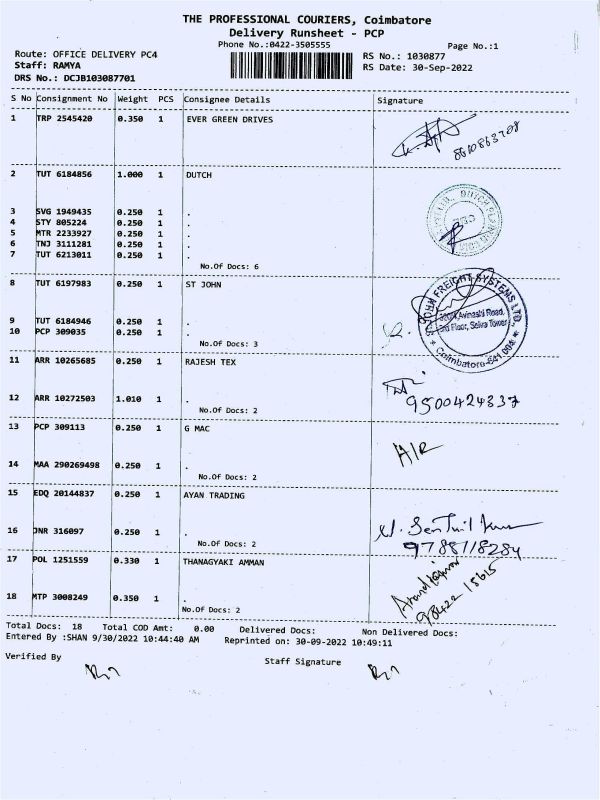 THE PROFESSIONAL COURIERS, Coimbatore
Delivery Runsheet - PCP
Phone No.:0422-3505555
Page No.:1
Route: OFFICE DELIVERY PC4
RS No.: 1030877
Staff: RAMYA
RS Date: 30-Sep-2022
DRS No.: DCJB103087701
S No Consignment No Weight PCS Consignee Details Signature
1 TRP 2545420 0.350 1 EVER GREEN DRIVES
2 TUT 6184856 1.000 1 DUTCH
3 SVG 1949435 0.250 1 .
4 STY 805224 0.250 1 .
5 MTR 2233927 0.250 1 .
6 TNJ 3111281 0.250 1 .
7 TUT 6213011 0.250 1 .
No.Of Docs: 6
8 TUT 6197983 0.250 1 ST JOHN
9 TUT 6184946 0.250 1 .
10 PCP 309035 0.250 1 .
No.Of Docs: 3
ST. JOHN FREIGHT SYSTEMS LTD.,
Avinashi Road,
3rd Floor, Selva Tower
* Coimbatore-641 004 *
11 ARR 10265685 0.250 1 RAJESH TEX
12 ARR 10272503 1.010 1 .
No.Of Docs: 2
9500424337
13 PCP 309113 0.250 1 G MAC
A/R
14 MAA 290269498 0.250 1 .
No.Of Docs: 2
15 EDQ 20144837 0.250 1 AYAN TRADING
16 JNR 316097 0.250 1 .
No.Of Docs: 2
9788718284
17 POL 1251559 0.330 1 THANAGYAKI AMMAN
18 MTP 3008249 0.350 1 .
No.Of Docs: 2
98422 15615
Total Docs: 18 Total COD Amt: 0.00 Delivered Docs: Non Delivered Docs:
Entered By :SHAN 9/30/2022 10:44:40 AM Reprinted on: 30-09-2022 10:49:11
Verified By
Staff Signature